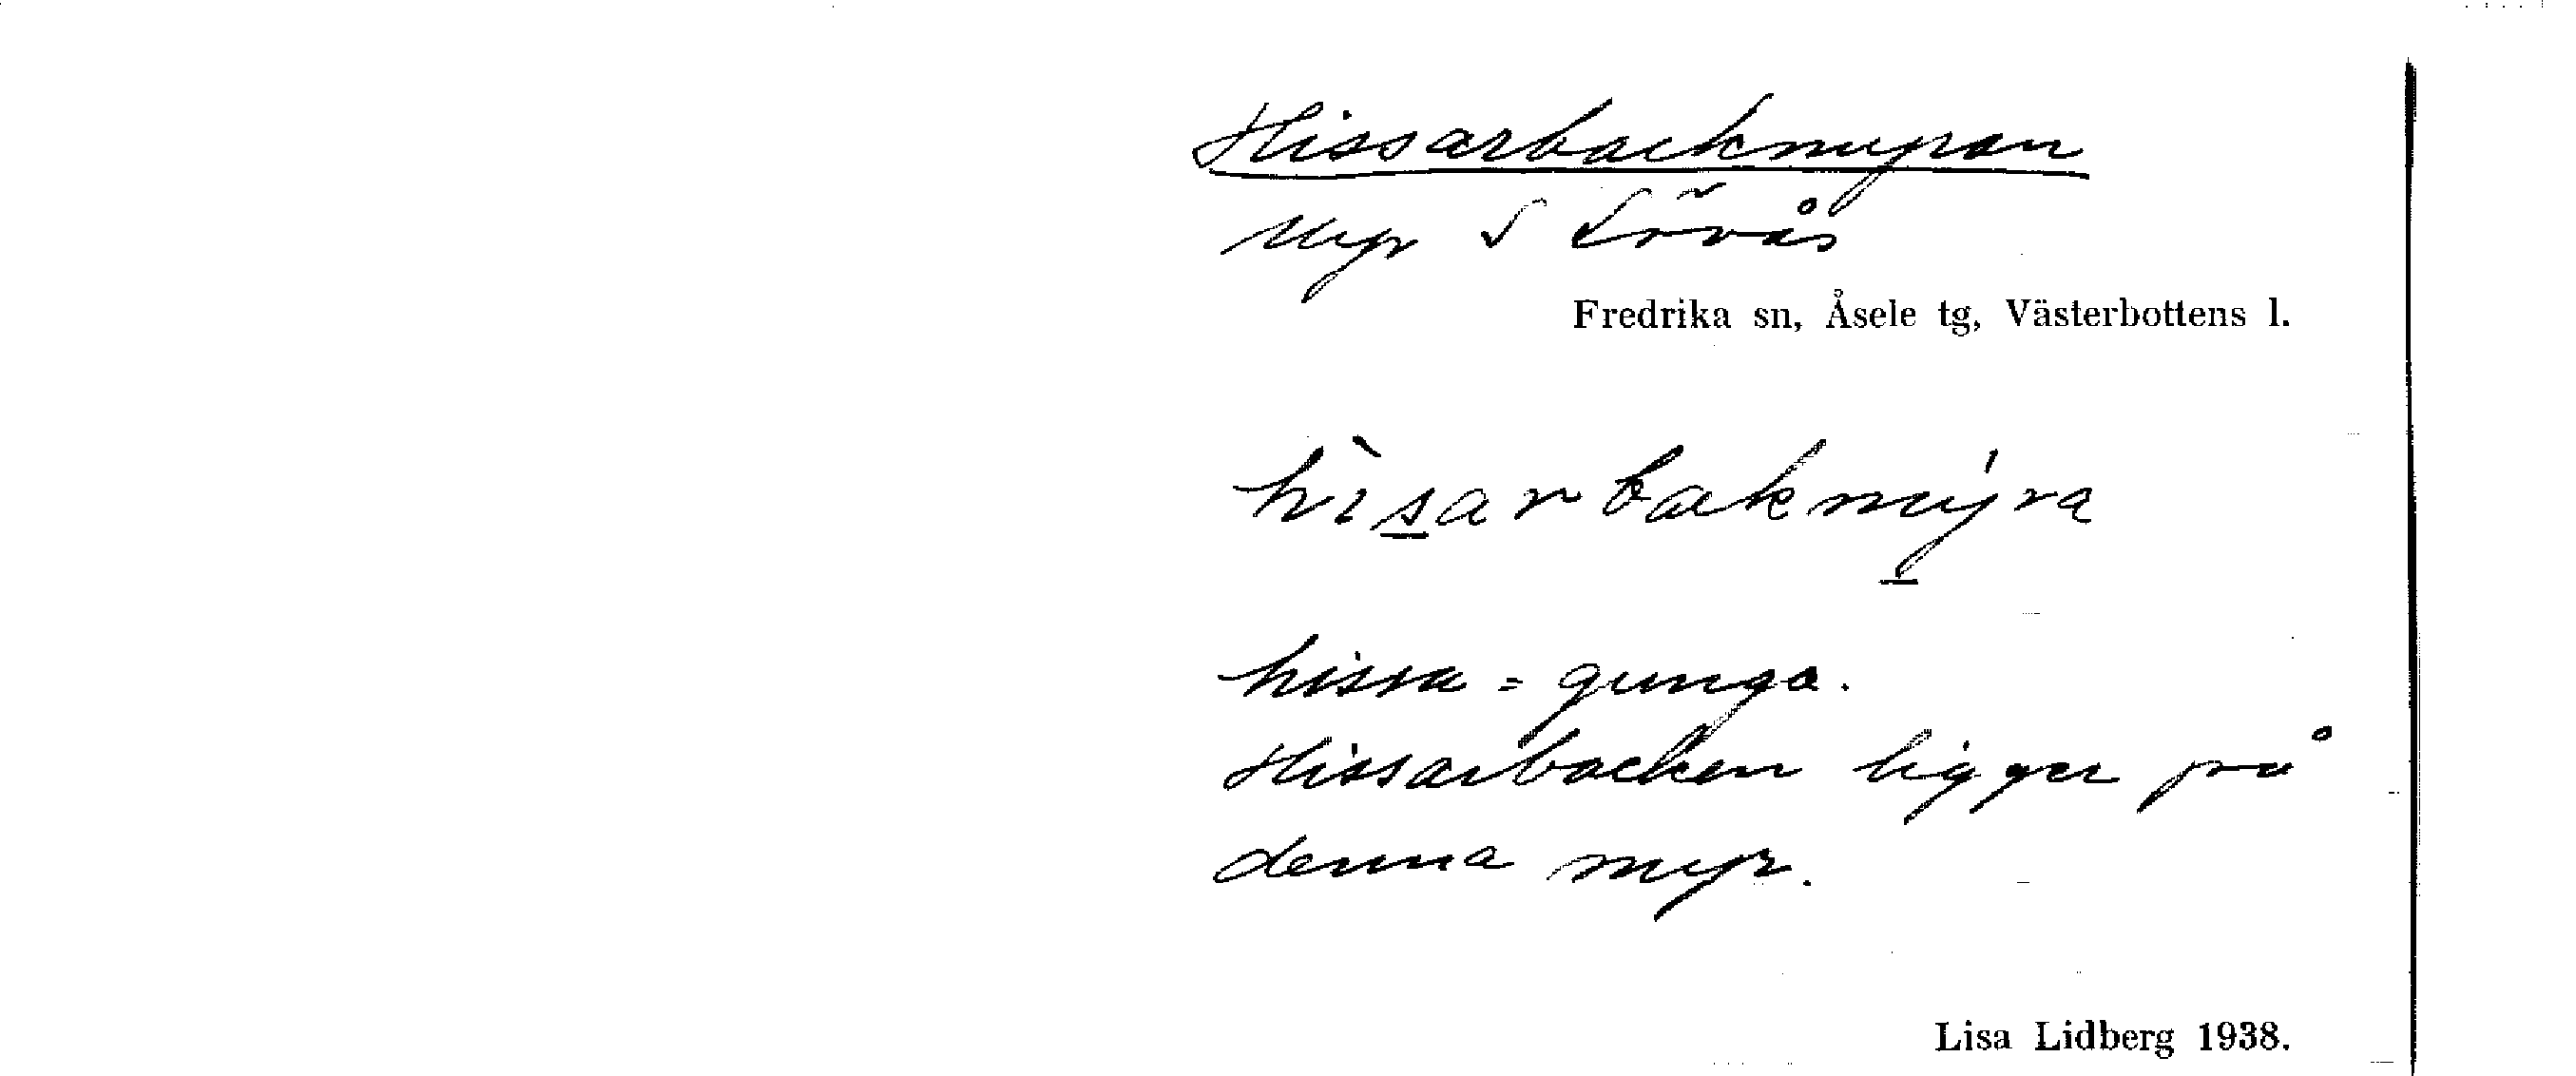 Hissarbackmyran
Myr S Lövås
Fredrika sn, Åsele tg, Västerbottens l.
hìsarbakmýra
hissa = gunga.
Hissarbacken ligger på
denna myr.
Lisa Lidberg 1938.